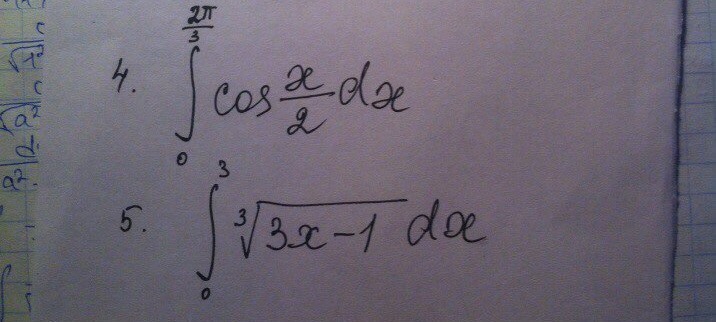 4. ∫₀^{2π/3} cos x/2 dx
5. ∫₀³ ∛(3x-1) dx